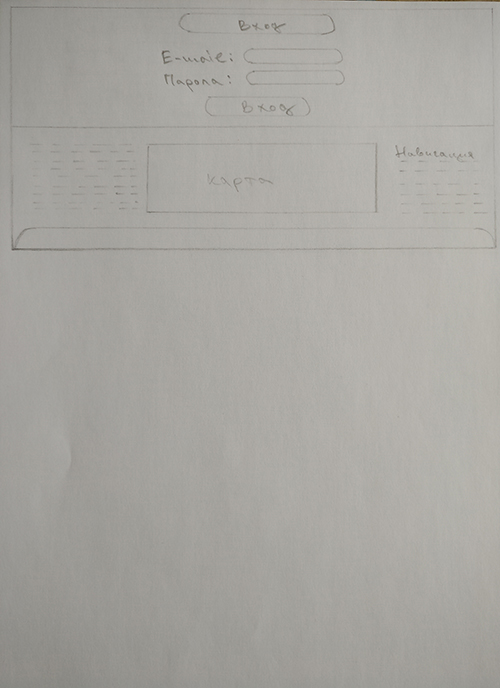 Вход
E-mail:
Парола:
Вход
Карта
Навигация